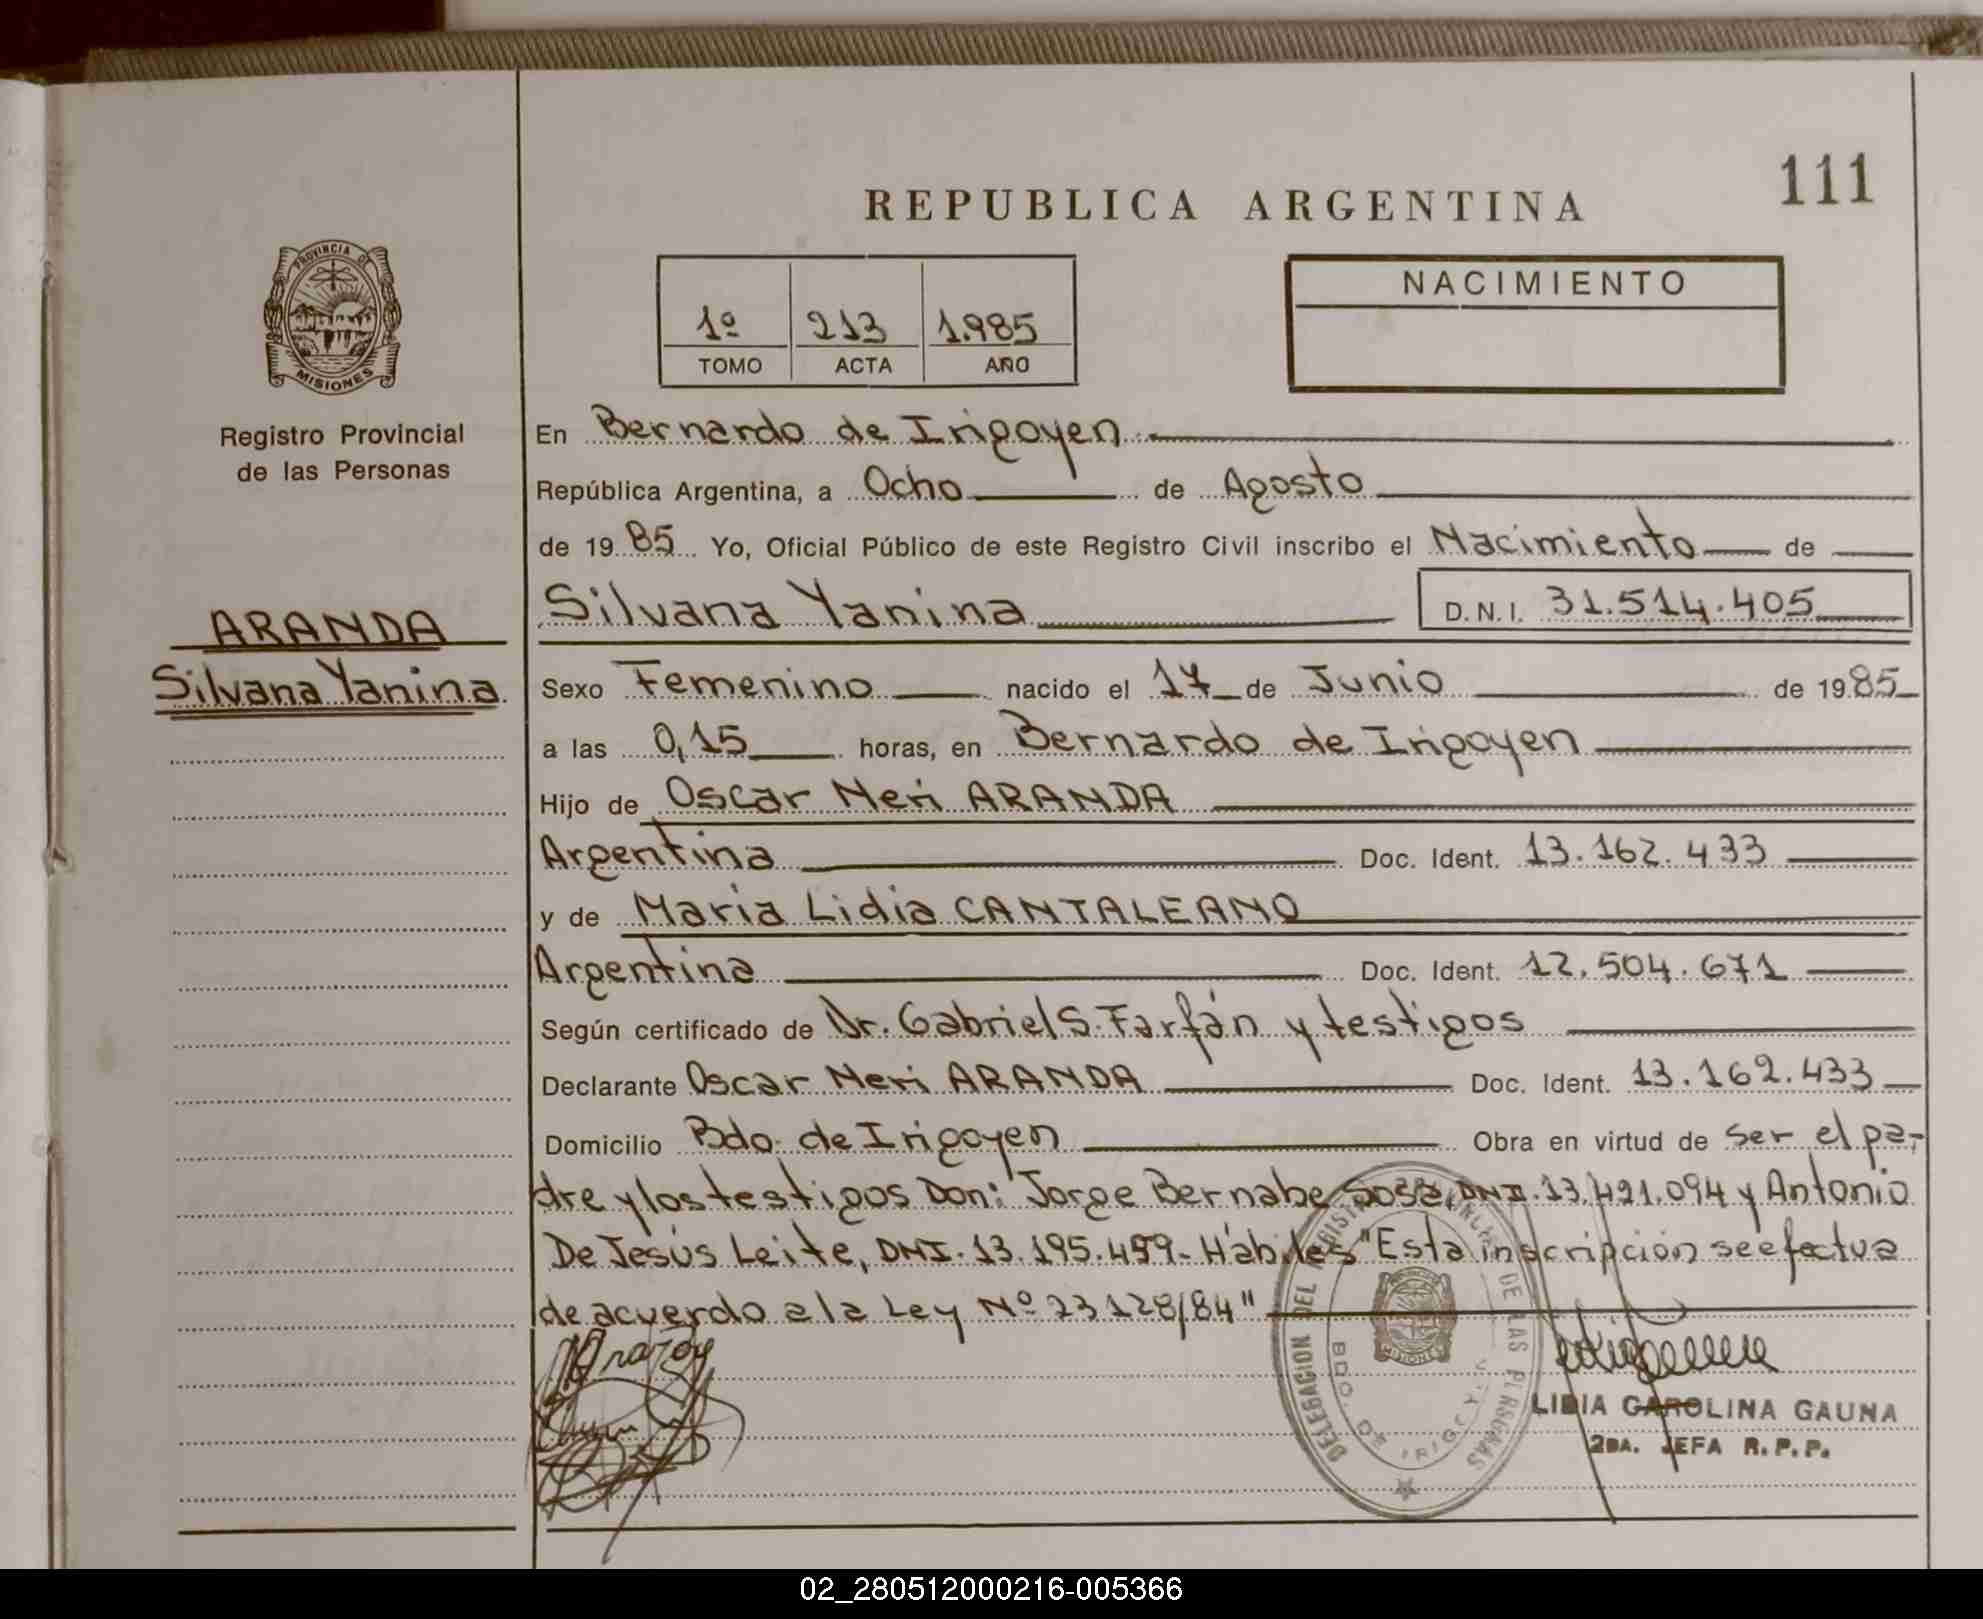 REPUBLICA ARGENTINA
111
PROVINCIA DE
MISIONES
Registro Provincial
de las Personas
1º 213 1.985
TOMO ACTA AÑO
NACIMIENTO
En Bernardo de Irigoyen
República Argentina, a Ocho de Agosto
de 1985 Yo, Oficial Público de este Registro Civil inscribo el Nacimiento de
Silvana Yanina D.N.I. 31.514.405
ARANDA
Silvana Yanina
Sexo Femenino nacido el 17 de Junio de 1985
a las 0,15 horas, en Bernardo de Irigoyen
Hijo de Oscar Neri ARANDA
Argentina Doc. Ident. 13.162.433
y de Maria Lidia CANTALEANO
Argentina Doc. Ident. 12.504.671
Según certificado de Dr. Gabriel S. Farfán y testigos
Declarante Oscar Neri ARANDA Doc. Ident. 13.162.433
Domicilio Bdo. de Irigoyen Obra en virtud de ser el pa-
dre y los testigos Don: Jorge Bernabe Sosa, DNI. 13.421.094 y Antonio
De Jesús Leite, DNI. 13.195.459- Hábiles "Esta inscripción se efectua
de acuerdo a la Ley Nº 23128/84"
DELEGACION DEL DE LAS PERSONAS
BDO. DE IRIGOYEN
MISIONES
LIDIA CAROLINA GAUNA
2DA. JEFA R.P.P.
02_280512000216-005366